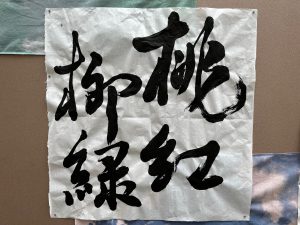 桃紅
柳緑